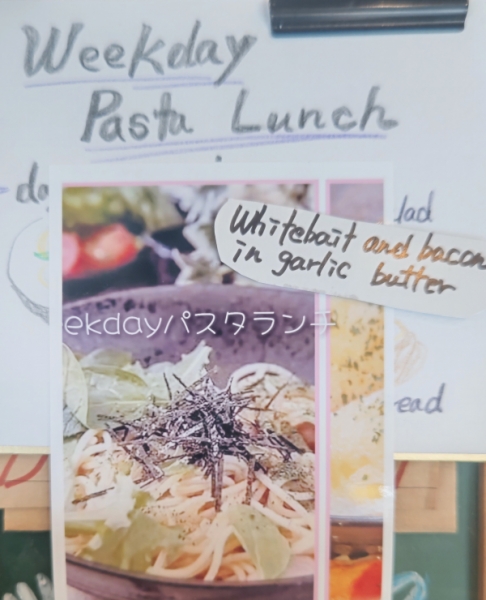 Weekday
Pasta Lunch
lad
Whitebait and bacon
in garlic butter
ekdayパスタランチ
ead